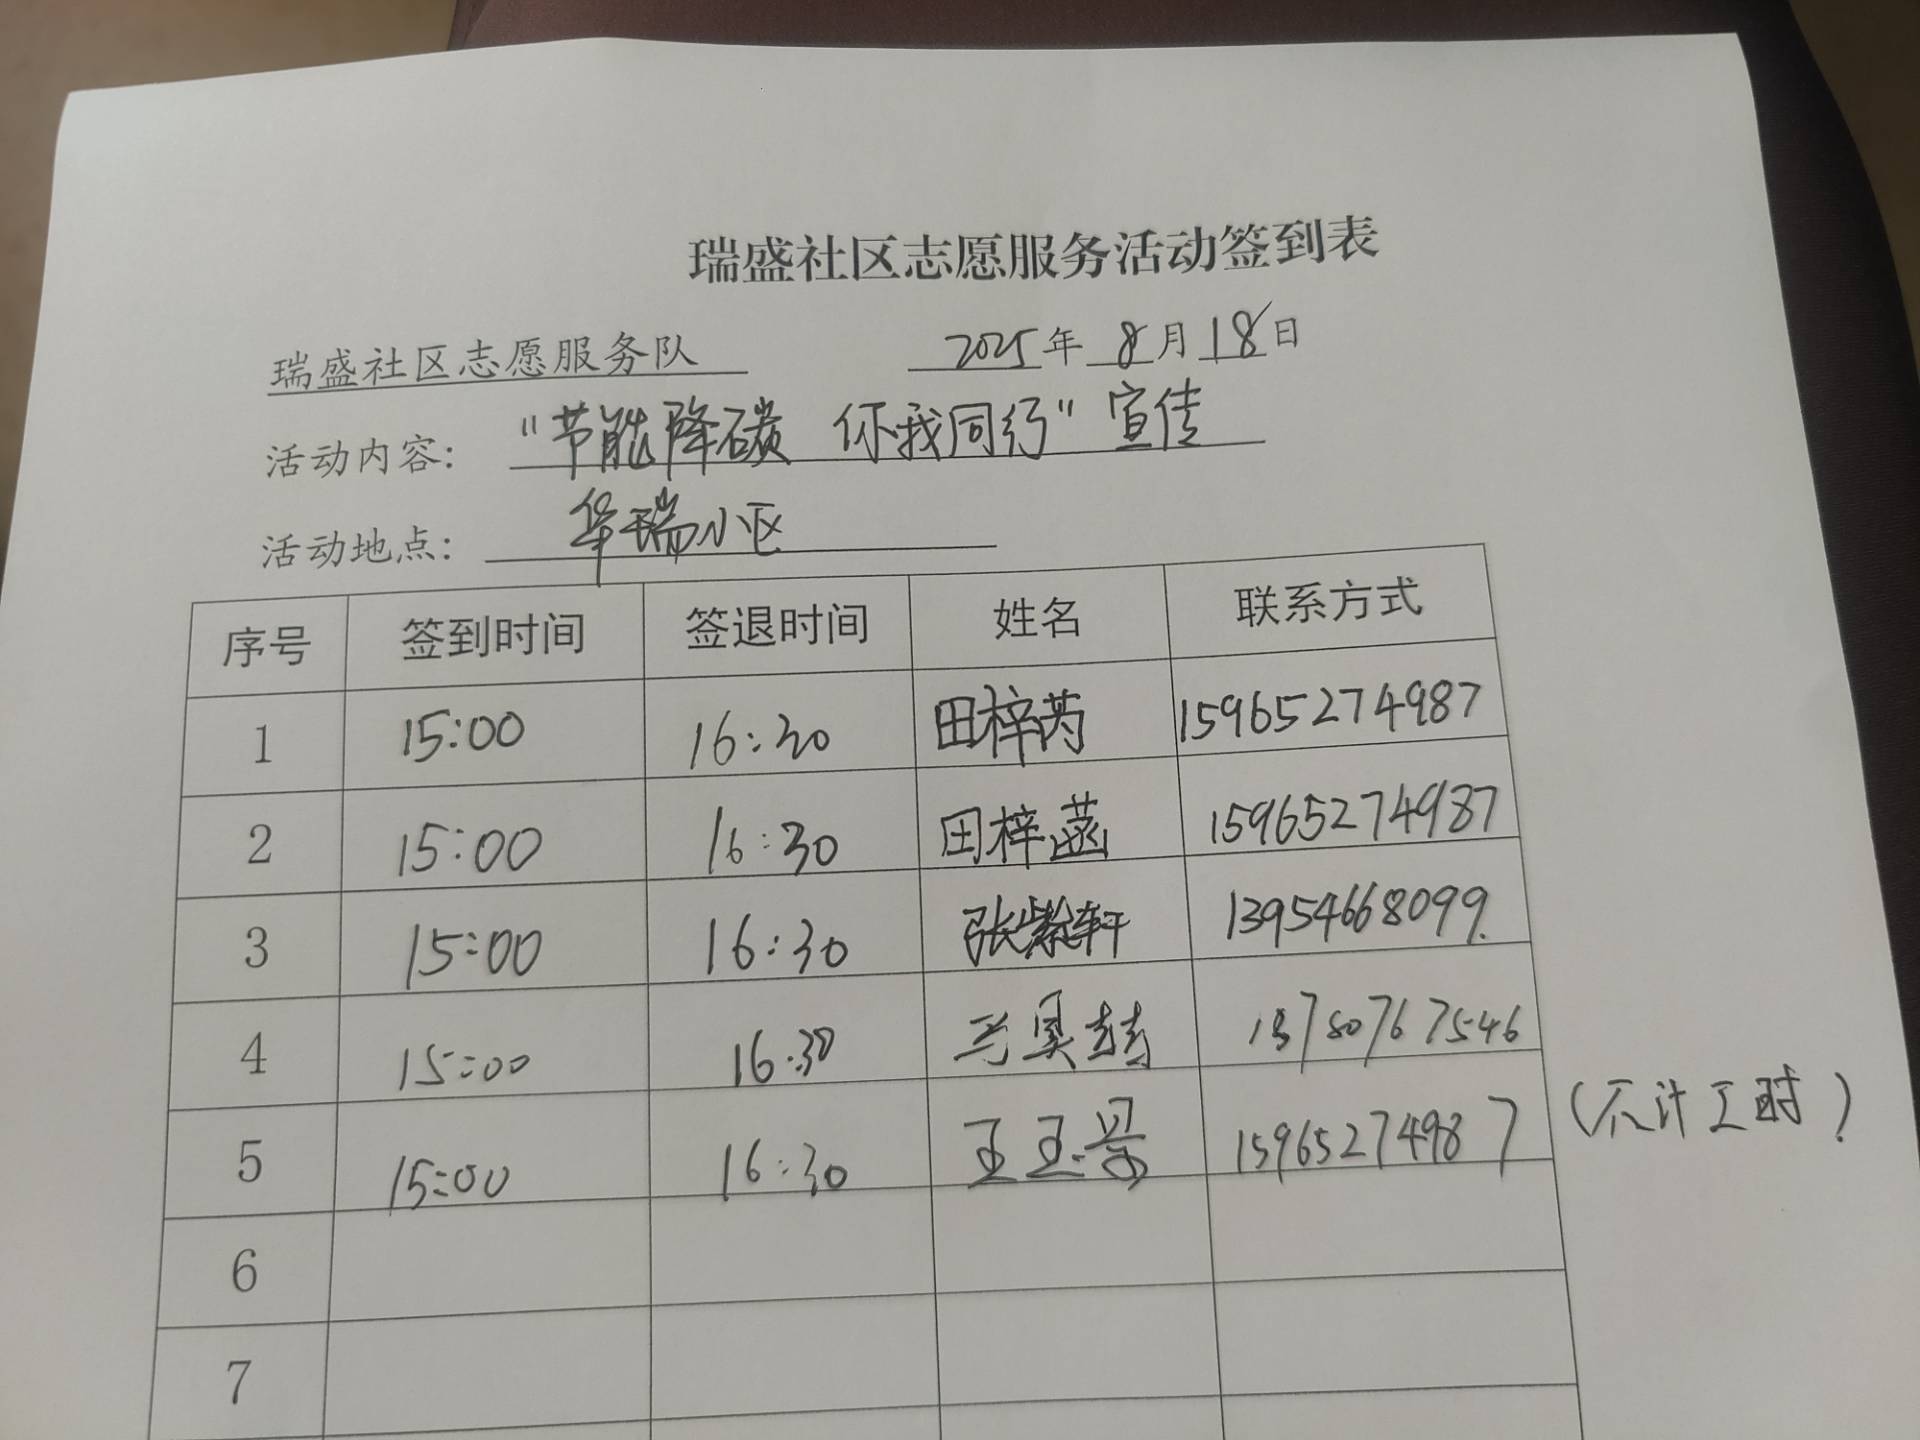 瑞盛社区志愿服务活动签到表
瑞盛社区志愿服务队 2025年 8月18日
活动内容： "节能降碳 你我同行"宣传
活动地点： 华瑞小区
序号 签到时间 签退时间 姓名 联系方式
1 15:00 16:30 田梓芮 15965274987
2 15:00 16:30 田梓菡 15965274987
3 15:00 16:30 张紫轩 13954668099.
4 15:00 16:30 13780767546
5 15:00 16:30 15965274987 (不计工时)
6
7